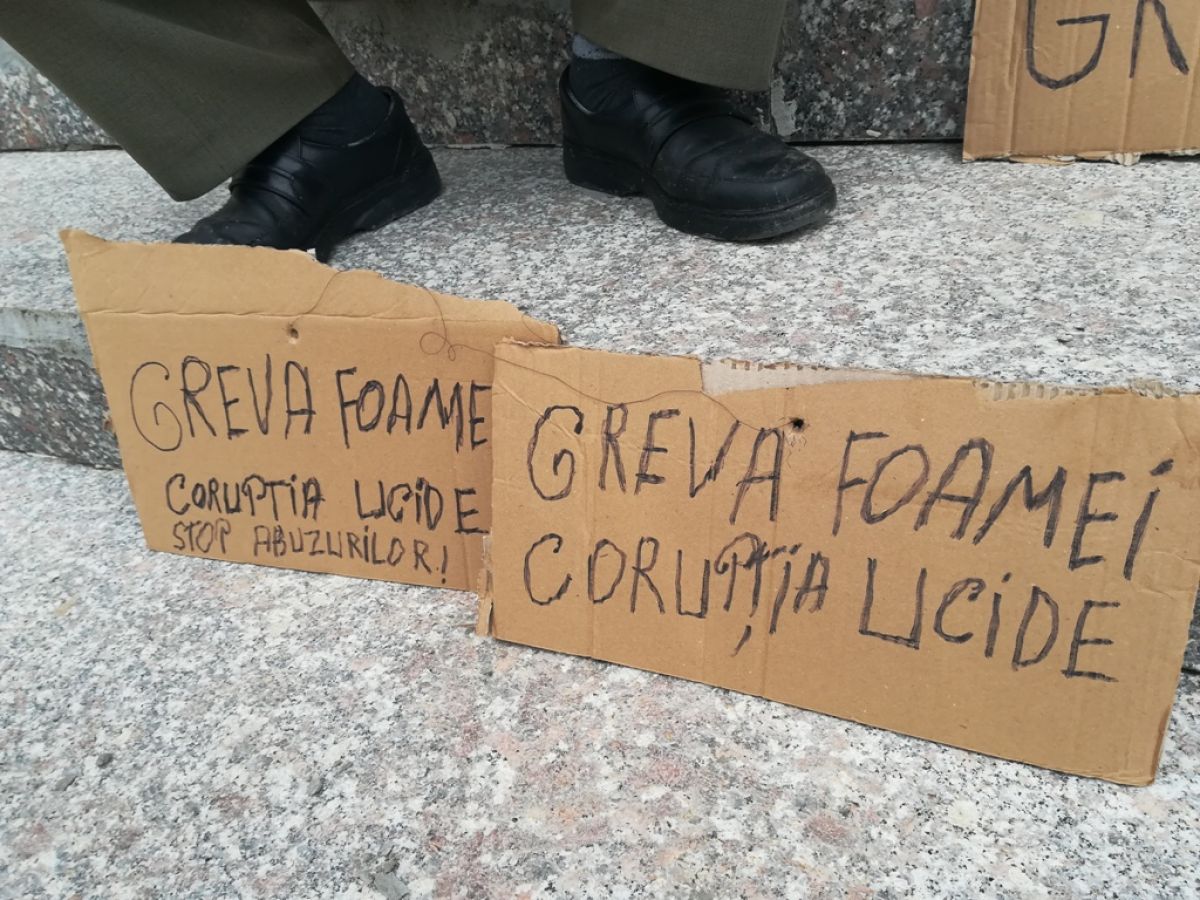 GREVA FOAME
CORUPTIA UCIDE
STOP ABUZURILOR!
GREVA FOAMEI
CORUPȚIA UCIDE